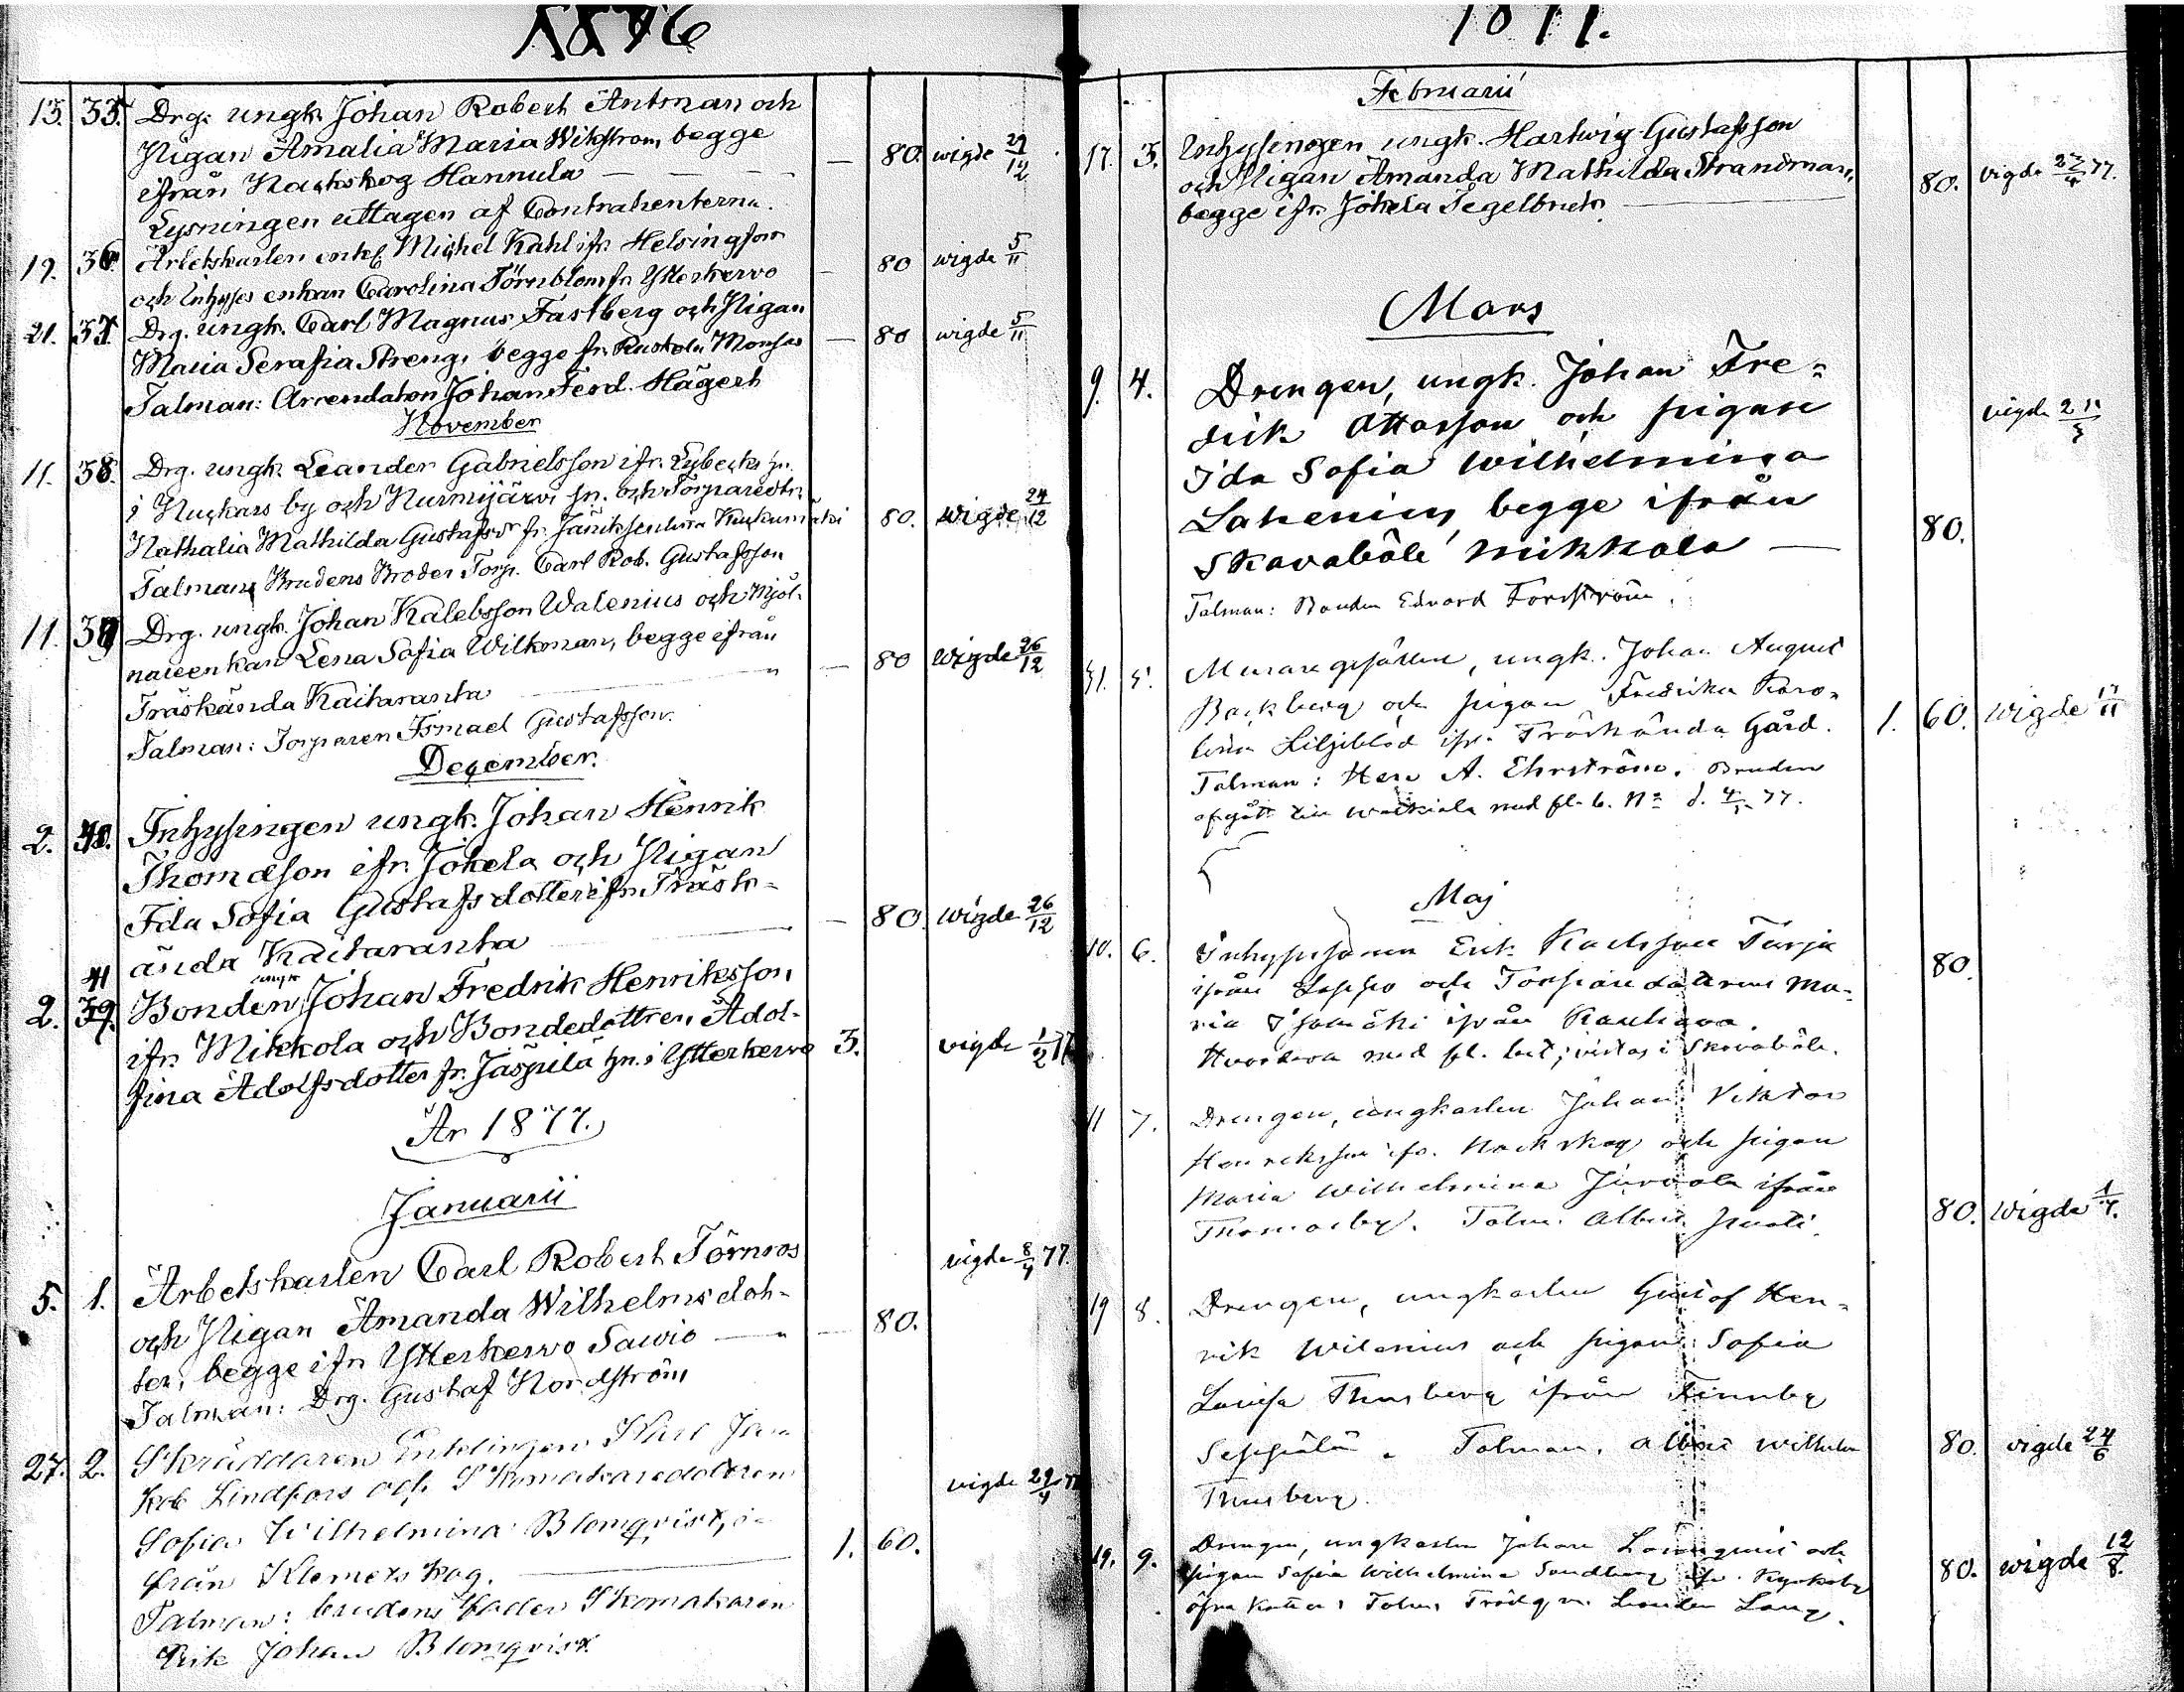 1876
13. 35. Drg. ungk. Johan Robert Antman och
Pigan Amalia Maria Wikström, begge
ifrån Nackskog Hannula — 80. wigde 29/12
Lysningen uttagen af Contrahenterna.
19. 36. Arbetskarlen enkl. Michel Kahl ifr. Helsingfors — 80 wigde 5/11
och Inhyses enkan Carolina Törnblom fr. Ytterkervo
21. 37. Drg. ungk. Carl Magnus Fastberg och Pigan — 80 wigde 5/11
Maria Serafia Streng, begge fr. Ruskela Monsas
Talman: Arrendatorn Johan Ferd. Hägert
November
11. 38. Drg. ungk. Leander Gabrielsson ifr. Lybecks hn.
i Nuckars by och Nurmijärvi sn. och Torparedtr.
Nathalia Mathilda Gustafsdr fr. Jäniksenlinna Kuckumäki 80. wigde 24/12
Talman, Brudens Broder Torp. Carl Rob. Gustafsson
11. 39 Drg. ungk. Johan Kalebsson Walenius och Mjöl-
nareenkan Lena Sofia Wilkman, begge ifrån — 80 wigde 26/12
Träskända Kaitaranta
Talman: Torparen Ismael Gustafsson.
December.
2. 40. Inhysingen ungk. Johan Henrik
Thomasson ifr. Jokela och Pigan
Ida Sofia Gustafsdotter ifr. Träsk-
ända Kaitaranta — 80 wigde 26/12
41 ungk
2. 39. Bonden Johan Fredrik Henriksson
ifr. Mikkola och Bondedottren Adol-
fina Adolfsdotter fr. Jäspilä hn. i Ytterkervo 3. vigde 1/2 77
År 1877.
Januarii
5. 1. Arbetskarlen Carl Robert Törnros vigde 8/4 77.
och Pigan Amanda Wilhelmsdot-
ter, begge ifr. Ytterkervo Sawio — 80.
Talman: Drg. Gustaf Nordström
27. 2. Skräddaren Enklingen Karl Ja-
kob Lindfors och Skomakaredottren vigde 29/4 77
Sofia Wilhelmina Blomqvist, i-
från Klemetskog. 1. 60.
Talman: brudens fader Skomakaren
Erik Johan Blomqvist
1877.
Februarii
17. 3. Inhysingen ungk. Hartwig Gustafsson
och Pigan Amanda Mathilda Strandman, 80. vigde 22/4 77.
begge ifr. Jokela Tegelbruk.
Mars
9. 4. Drengen, ungk. Johan Fre-
drik Ottosson och pigan vigde
Ida Sofia Wilhelmina
Lahenius, begge ifrån
Skavaböle Mikkola — 80.
Talman: Bonden Edvard Forsström.
31. 5. Muraregesällen, ungk. Johan August
Backberg och pigan Fredrika Karo-
lina Liljeblad ifr. Träskända Gård. 1. 60. wigde 17/11
Talman: Herr A. Ehrström. Bruden
afgått till med fl. b. No d. 77.
Maj
10. 6. Inhysesonen Erik Karlsson Turja 80.
ifrån Lappo och Torparedottren Ma-
ria Isomäki ifrån Kauhava.
med fl. bet; vistas i Skavaböle.
11 7. Drengen, ungkarlen Johan Viktor
Henriksson ifr. Nackskog och pigan
Maria Wilhelmina Jürvola ifrån
Thomasby. Talm. Albert 80. wigde 1/7.
19 8. Drengen, ungkarlen Gustaf Hen-
rik Wilenius och pigan Sofia
Lovisa Thusberg ifrån Finnby
Seppälä. Talman. Albert Wilhelm 80. vigde 24/6
Thusberg.
19. 9. Drengen, ungkarlen Johan Lönnqvist och
pigan Sofia Wilhelmina Sandberg ifr. Kyrkoby 80. wigde 12/8.
öfre Talm. Trädg.m. Lang.